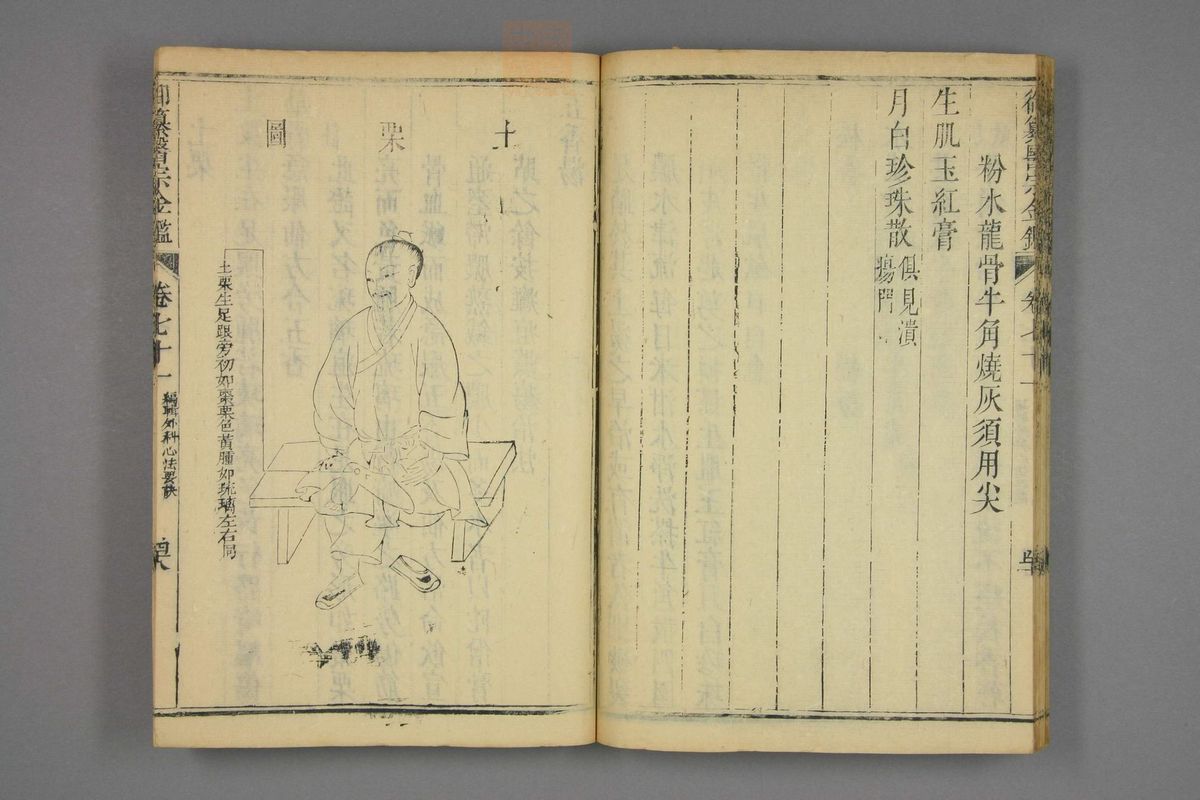 御纂醫宗金鑑 卷七十一
粉水龍骨牛角燒灰須用尖
生肌玉紅膏
月白珍珠散
俱見潰
瘍門
土栗圖
土栗生足跟旁初如棗栗色黃腫如琉璃左右同
御纂醫宗金鑑 卷七十一 編輯外科心法要訣